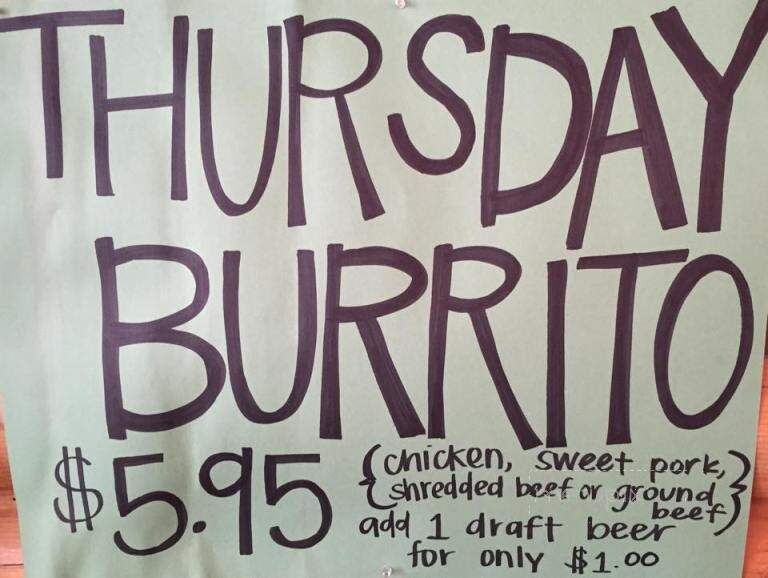 THURSDAY
BURRITO
$5.95
{chicken, sweet pork,
shredded beef or ground
beef}
add 1 draft beer
for only $1.00